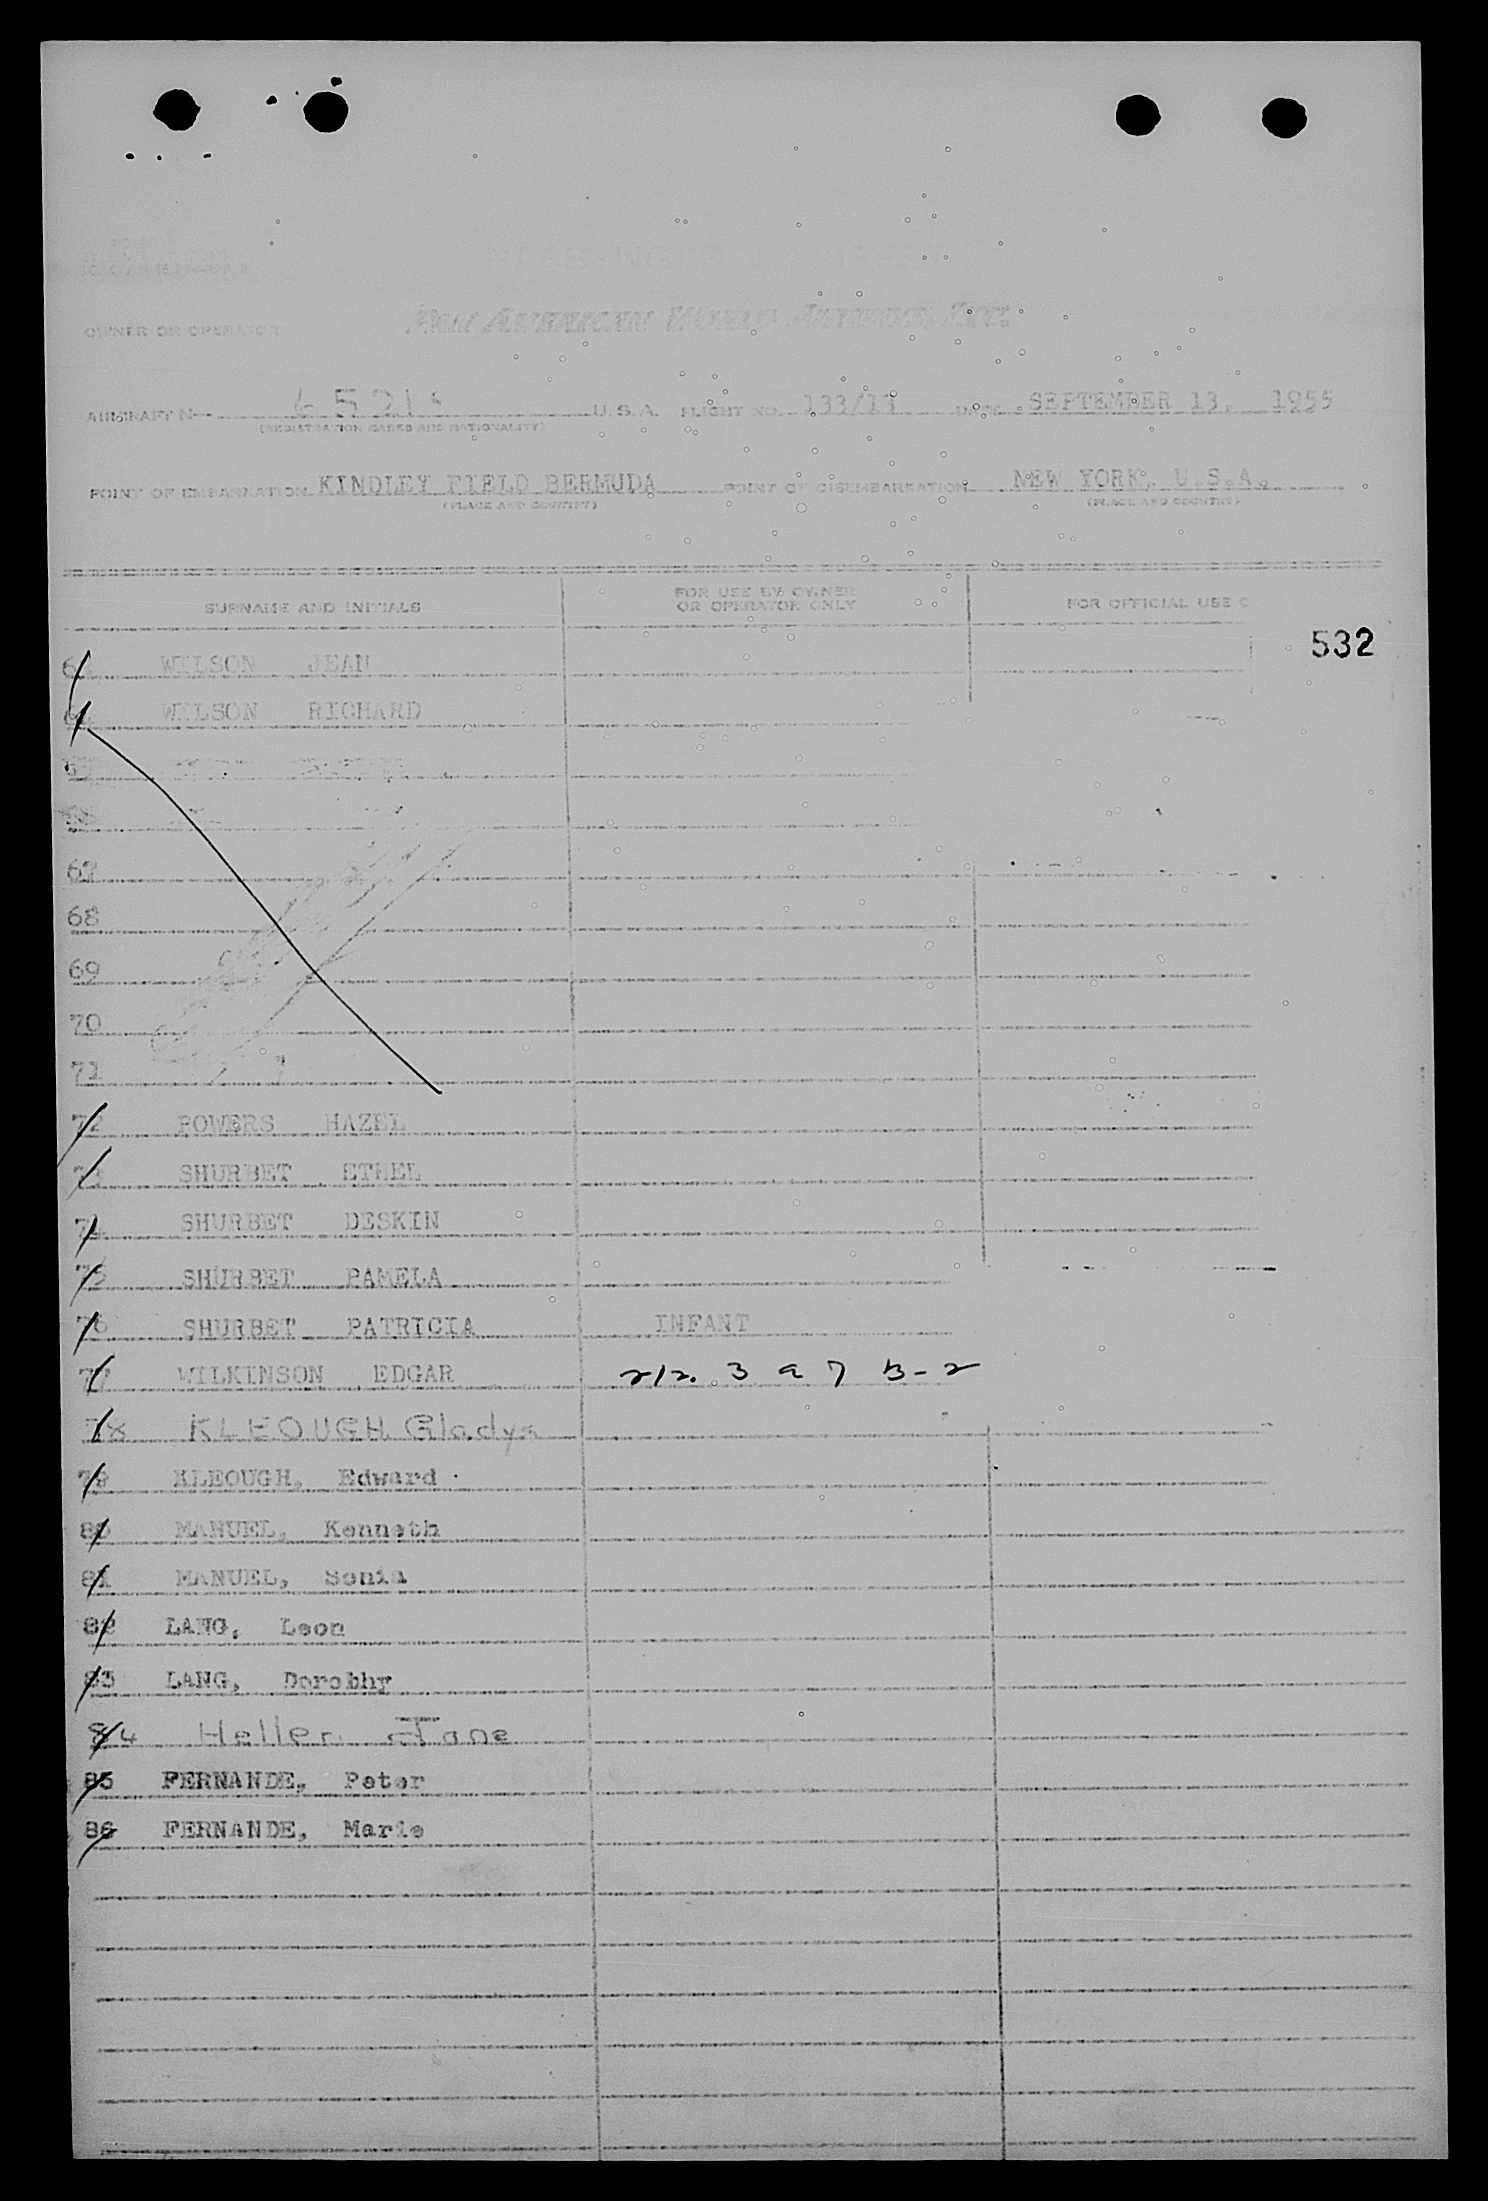 OWNER OR OPERATOR PAN AMERICAN WORLD AIRWAYS INC.
AIRCRAFT U.S.A. FLIGHT NO. 133/13 DATE SEPTEMBER 13, 1955
(REGISTRATION MARKS AND NATIONALITY)
POINT OF EMBARKATION KINDLEY FIELD BERMUDA POINT OF DISEMBARKATION NEW YORK, U.S.A.
(PLACE AND COUNTRY) (PLACE AND COUNTRY)
SURNAME AND INITIALS FOR USE BY OWNER OR OPERATOR ONLY FOR OFFICIAL USE O
532
WILSON JEAN
WILSON RICHARD
67
68
69
70
71
72 POWERS HAZEL
73 SHURBET ETHEL
74 SHURBET DESKIN
75 SHURBET PAMELA
76 SHURBET PATRICIA INFANT
77 WILKINSON EDGAR
78 KLEOUGH Gladys
79 KLEOUGH, Edward
80 MANUEL, Kenneth
81 MANUEL, Sonia
82 LANG, Leon
83 LANG, Dorothy
84 Heller Jane
85 FERNANDE, Peter
86 FERNANDE, Marie